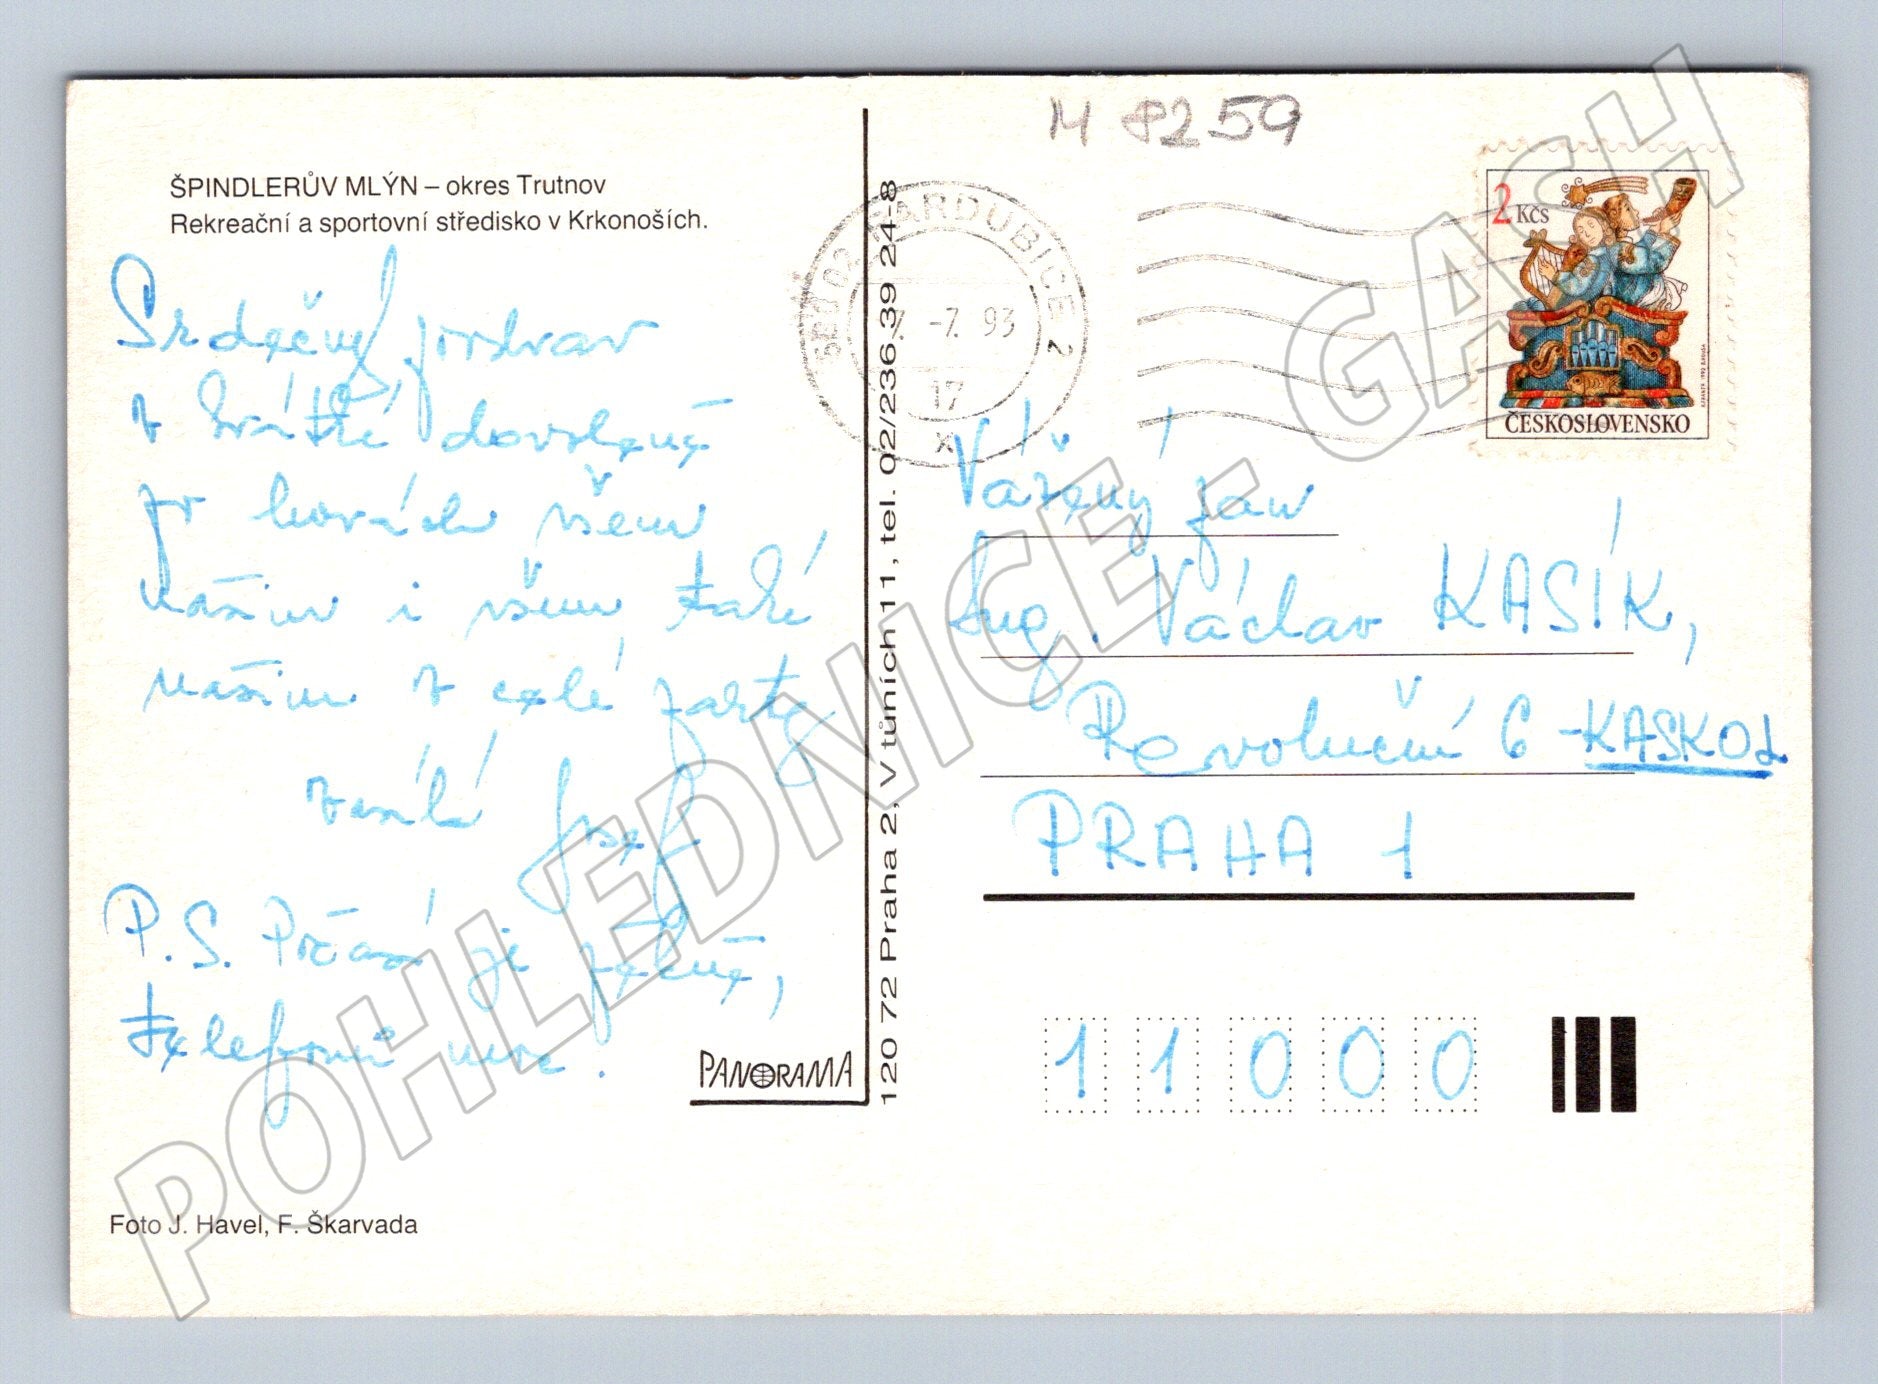 ŠPINDLERŮV MLÝN – okres Trutnov
Rekreační a sportovní středisko v Krkonoších.
Srdečný pozdrav
z krátké dovolené
po horách všem
našim i všem také
našim z celé party
zasílá Josef
P.S. Počasí je pěkné,
telefonů není.
PANORAMA
Foto J. Havel, F. Škarvada
120 72 Praha 2, V tůních 11, tel. 02/236 39 24-8
M 8259
530 02 PARDUBICE 2
7. -7. 93
17
x
2 Kčs
ČESKOSLOVENSKO
Vážený pan
Ing. Václav KASÍK,
Revoluční 6 - KASKOL
PRAHA 1
11000
POHLEDNICE - GASH